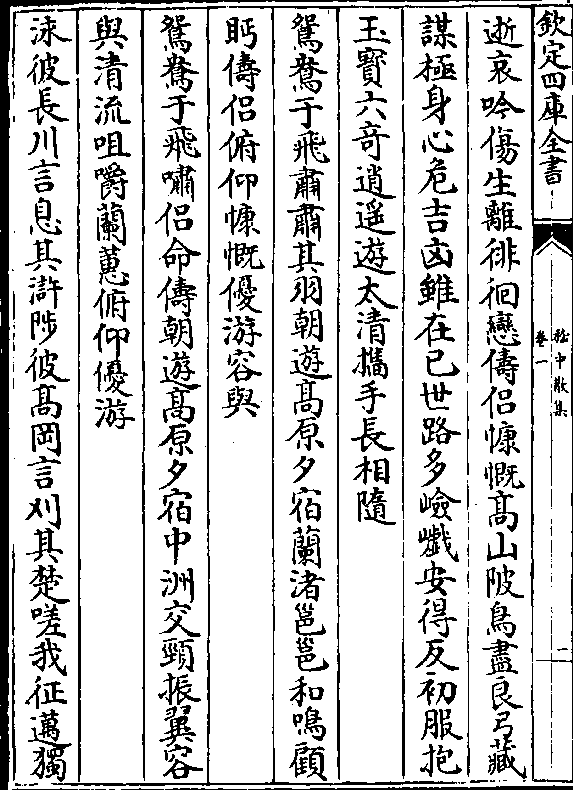 欽定四庫全書
嵇中散集
卷一
一
逝哀吟傷生離徘徊戀儔侣慷慨髙山陂鳥盡良弓藏
謀極身心危吉凶雖在已世路多嶮巇安得反初服抱
玉寳六竒逍遥遊太清攜手長相隨
鴛鴦于飛肅肅其羽朝遊髙原夕宿蘭渚邕邕和鳴顧
眄儔侣俯仰慷慨優游容與
鴛鴦于飛嘯侣命儔朝遊髙原夕宿中洲交頸振翼容
與清流咀嚼蘭蕙俯仰優游
泳彼長川言息其滸陟彼髙岡言刈其楚嗟我征邁獨